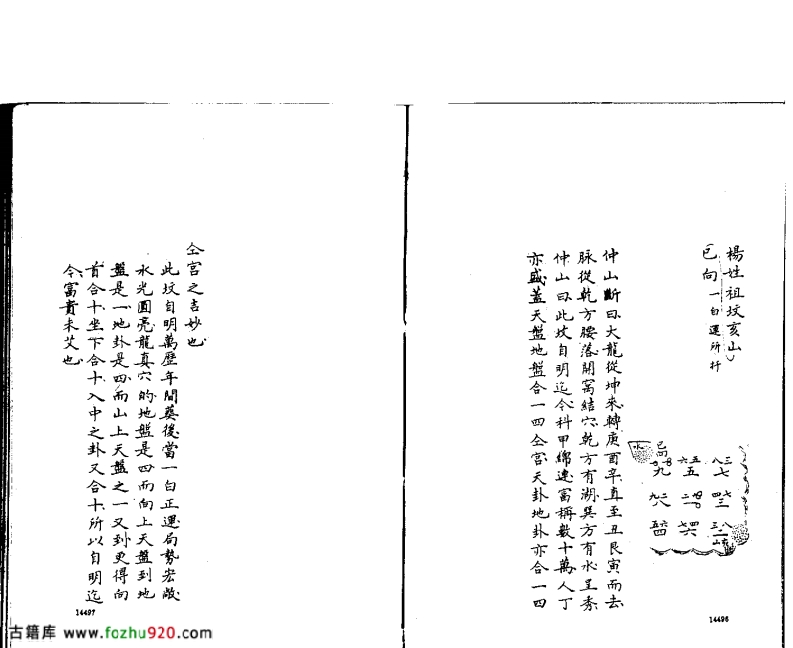 楊姓祖坟亥山
巳向一白運所扦
仲山斷曰大龍從坤來轉庚酉辛直至丑艮寅而去
脉從乾方腰落開窩結穴乾方有湖巽方有水呈秀
仲山曰此坟自明迄今科甲綿連富稱數十萬人丁
亦盛盖天盤地盤合一四仝宮天卦地卦亦合一四
14496
仝宮之吉妙也
此坟自明萬歷年間葬後當一白正運局勢宏敞
水光圓亮龍真穴的地盤是四而向上天盤到地
盤是一地卦是四而山上天盤之一又到更得向
首合十坐下合十入中之卦又合十所以自明迄
今富貴未艾也
14497
古籍库 www.fozhu920.com